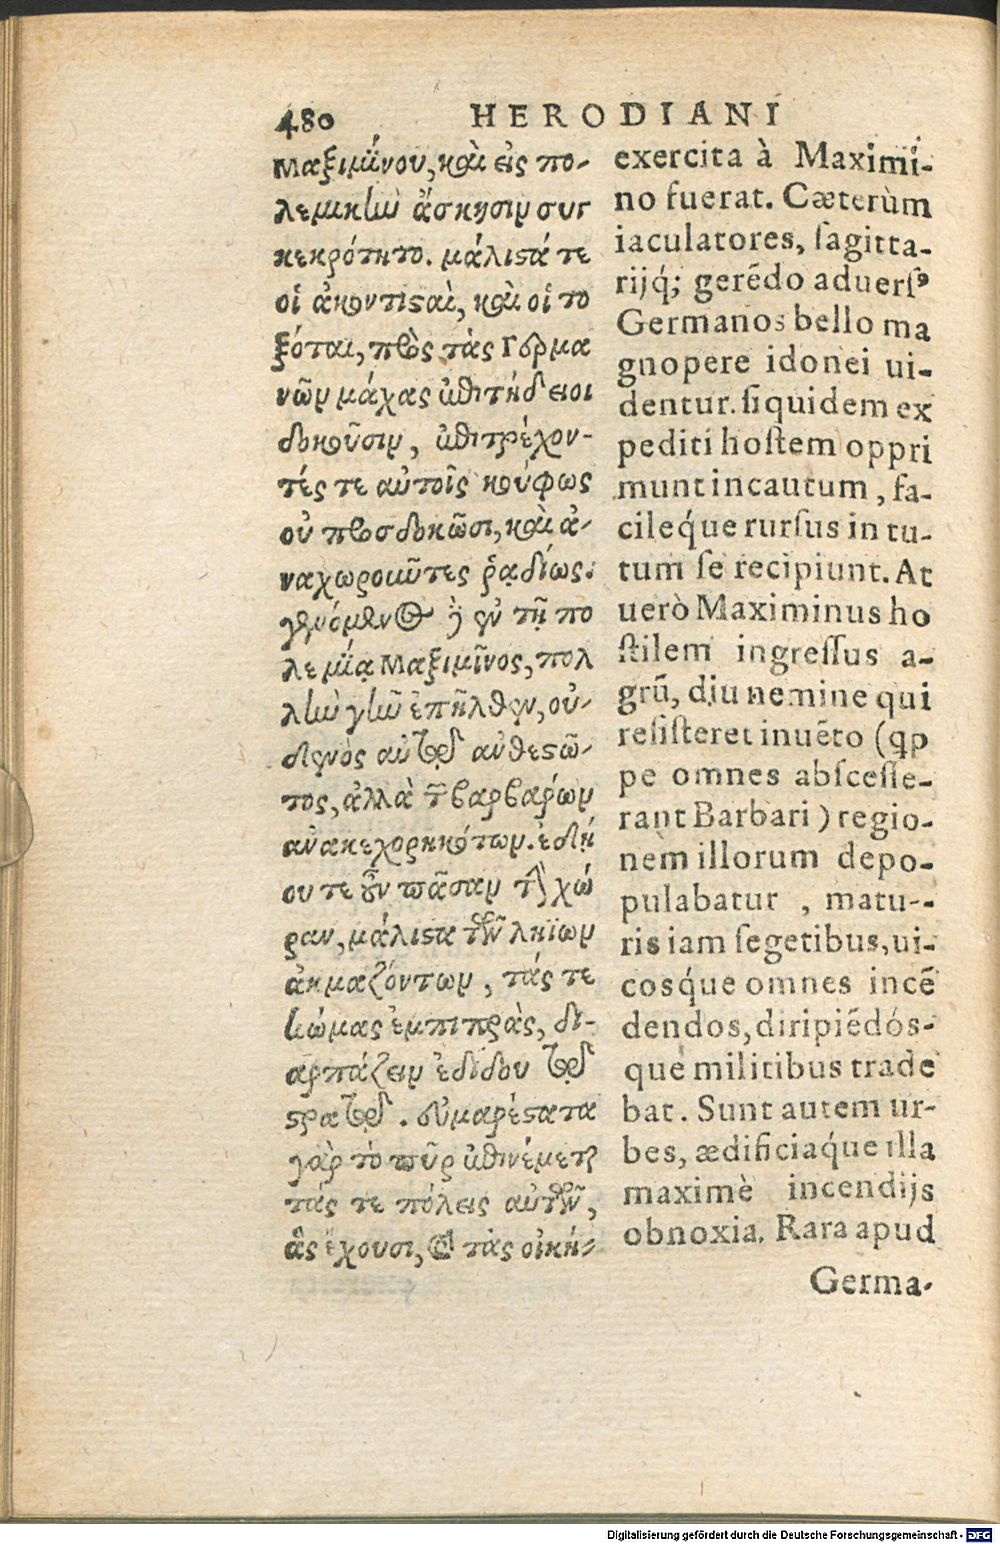 480 HERODIANI
Μαξιμίνου, καὶ εἰς πο-
λεμικὴν ἄσκησιν συγ
κεκρότητο. μάλιστά τε
οἱ ἀκοντισταὶ, καὶ οἱ το
ξόται, πρὸς τὰς Γερμα
νῶν μάχας ἐπιτήδειοι
δοκοῦσιν, ἐπιτρέχον-
τές τε αὐτοῖς κούφως
οὐ προσδοκῶσι, καὶ ἀ-
ναχωροιωῦτες ῥᾳδίως.
γενόμενος δὲ ἐν τῇ πο
λεμίᾳ Μαξιμῖνος, πολ
λὴν γῆν ἐπῆλθεν, οὐ-
δενὸς αὐτῷ ἀνθεστῶ-
τος, ἀλλὰ τῶν βαρβάρων
ἀνακεχορηκότων. ἐδῄ
ου τε οὖν πᾶσαν τὴν χώ
ραν, μάλιστα τῶν ληΐων
ἀκμαζόντων, τάς τε
κώμας ἐμπιπρὰς, δι-
αρπάζειν ἐδίδου τῷ
στρατῷ. εὐμαρέστατα
γὰρ τὸ πῦρ ἐπινέμεται
τάς τε πόλεις αὐτῶν,
ἃς ἔχουσι, καὶ τὰς οἰκή-
exercita à Maximi-
no fuerat. Cæterùm
iaculatores, sagitta-
rijq́; gerẽdo aduersꝰ
Germanos bello ma
gnopere idonei ui-
dentur. siquidem ex
pediti hostem oppri
munt incautum, fa-
cileq́ue rursus in tu-
tum se recipiunt. At
uerò Maximinus ho
stilem ingressus a-
grũ, diu nemine qui
resisteret inuẽto (qp
pe omnes abscesse-
rant Barbari) regio-
nem illorum depo-
pulabatur, matu--
ris iam segetibus, ui-
cosq́ue omnes incẽ
dendos, diripiẽdós-
que militibus trade
bat. Sunt autem ur-
bes, ædificiaq́ue illa
maximè incendijs
obnoxia. Rara apud
Germa-
Digitalisierung gefördert durch die Deutsche Forschungsgemeinschaft - DFG